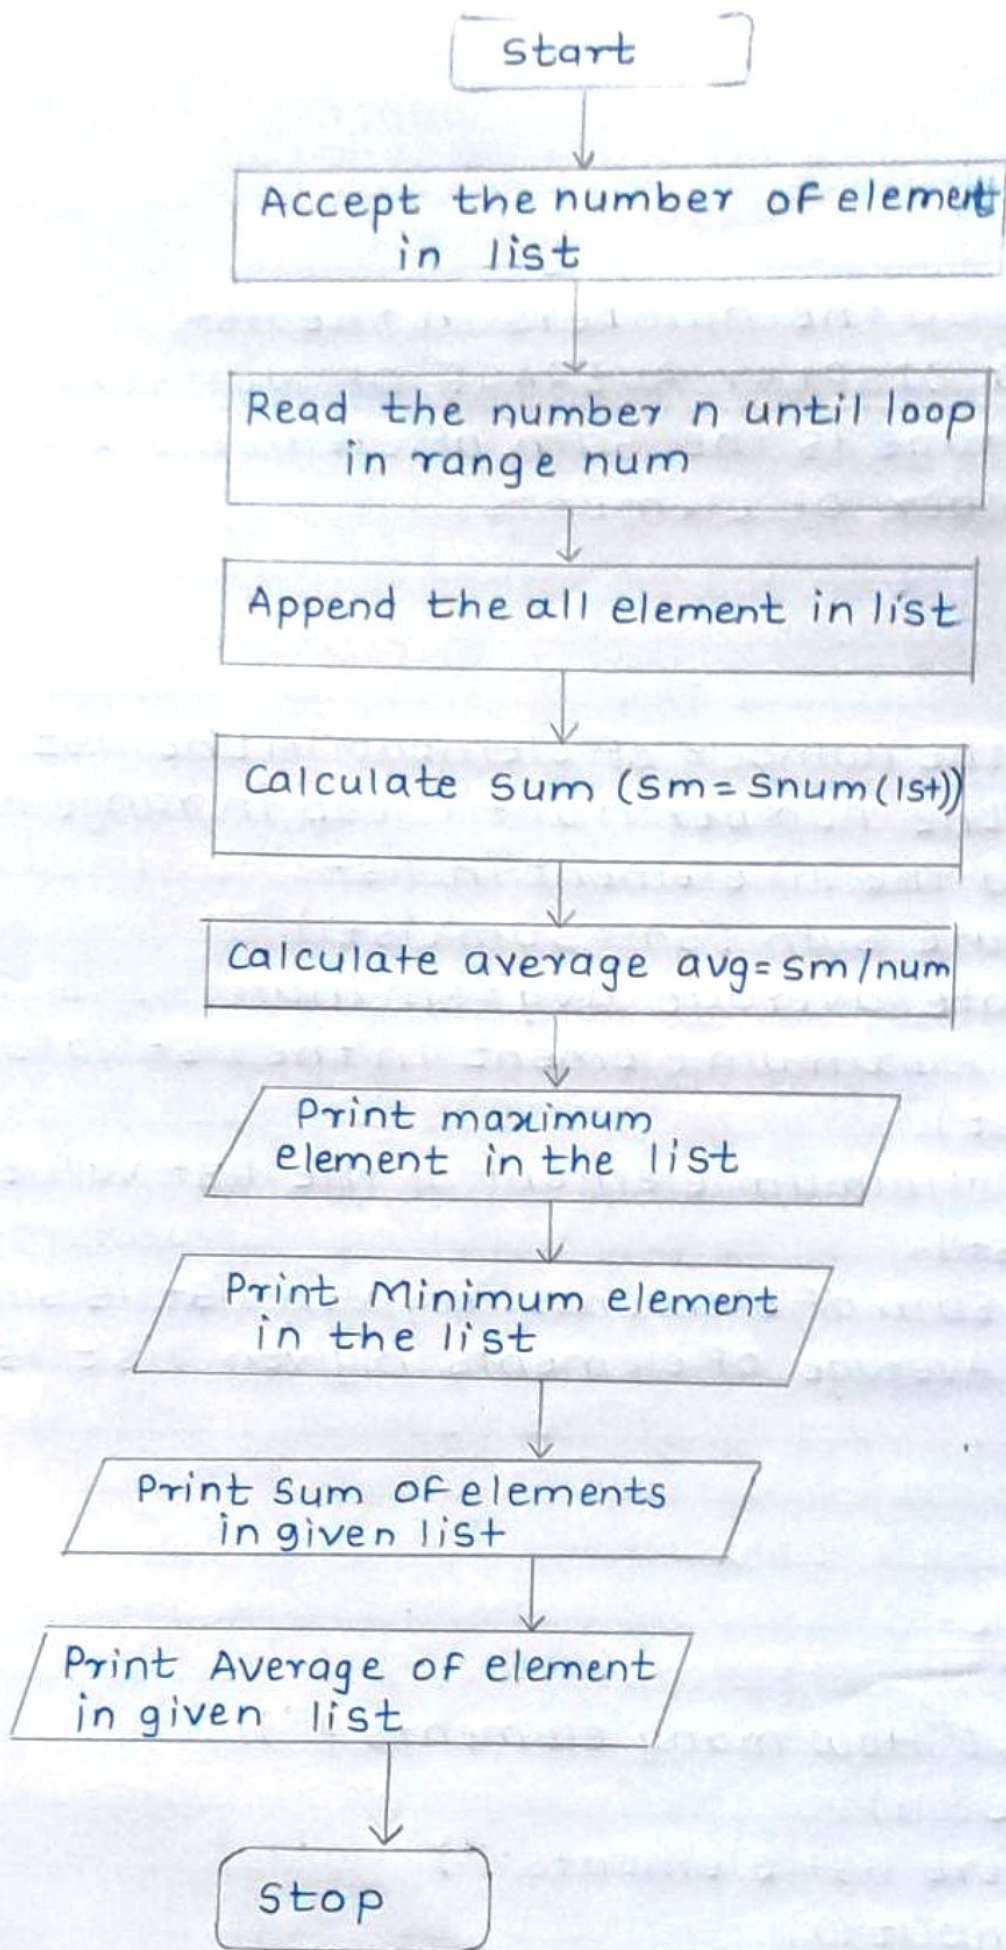 Start
Accept the number of element
in list
Read the number n until loop
in range num
Append the all element in list
Calculate Sum (Sm = Snum (lst))
Calculate average avg = sm / num
Print maximum
element in the list
Print Minimum element
in the list
Print Sum of elements
in given list
Print Average of element
in given list
Stop